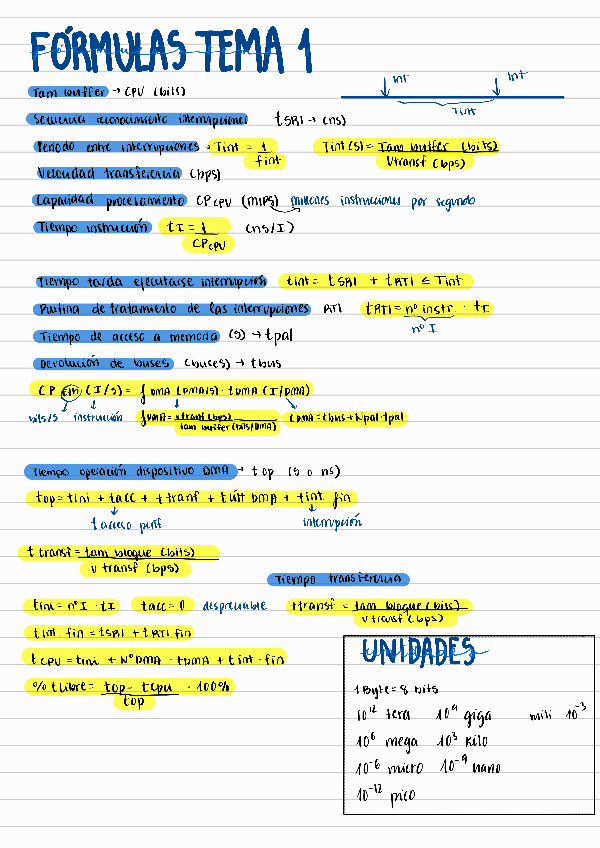 FÓRMULAS TEMA 1
Tam buffer → CPU (bits)
Int Int
Tint
Secuencia reconocimiento interrupciones tSRI → (ns)
Periodo entre interrupciones → Tint = 1 / fint Tint (s) = Tam buffer (bits) / Vtransf (bps)
Velocidad transferencia (bps)
Capacidad procesamiento CPCPU (MIPS) millones instrucciones por segundo
Tiempo instrucción tI = 1 / CPCPU (ns/I)
Tiempo tarda ejecutarse interrupción tint = tSRI + tRTI ≤ Tint
Rutina de tratamiento de las interrupciones RTI tRTI = nº instr. · tI
nº I
Tiempo de acceso a memoria (s) → tpal
Devolución de buses (buses) → tbus
CP E/S (I/s) = fDMA (DMA/s) · tDMA (I/DMA)
bits/s instrucción fDMA = vtransf (bps) / tam buffer (bits/DMA) tDMA = tbus + Npal·tpal
Tiempo operación dispositivo DMA → top (s o ns)
top = tini + tacc + ttranf + túlt DMA + tint fin
t acceso perif interrupción
t transf = tam bloque (bits) / v transf (bps)
Tiempo transferencia
tini = nº I · tI tacc = 0 despreciable ttransf = tam bloque (bits) / v transf (bps)
tint fin = tSRI + tRTI fin
tCPU = tini + NºDMA · tDMA + tint · fin
% tLibre = top - tcpu / top · 100%
UNIDADES
1 Byte = 8 bits
10^12 tera 10^9 giga mili 10^-3
10^6 mega 10^3 kilo
10^-6 micro 10^-9 nano
10^-12 pico